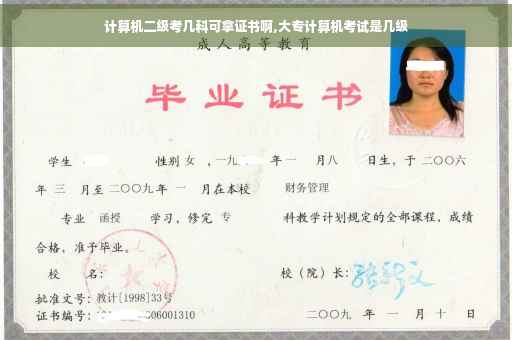 计算机二级考几科可拿证书啊,大专计算机考试是几级
成人高等教育
毕业证书
学生 性别 女 ,一九 年 一 月八 日生，于 二〇〇六
年 三 月至 二〇〇九 年 一 月在本校 财务管理
专业 函授 学习，修完 专 科教学计划规定的全部课程，成绩
合格，准予毕业。
校 名： 校（院）长：
批准文号：教计[1998]33号
证书编号： 06001310 二〇〇九 年 一 月 十 日